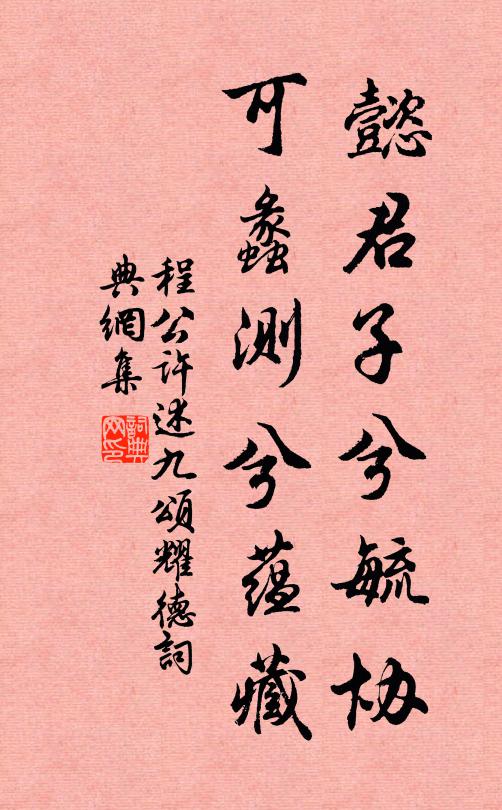 懿君子兮毓协
可蠡測兮蕴藏
程公許述九頌耀德詞
典網集
詞典
网印